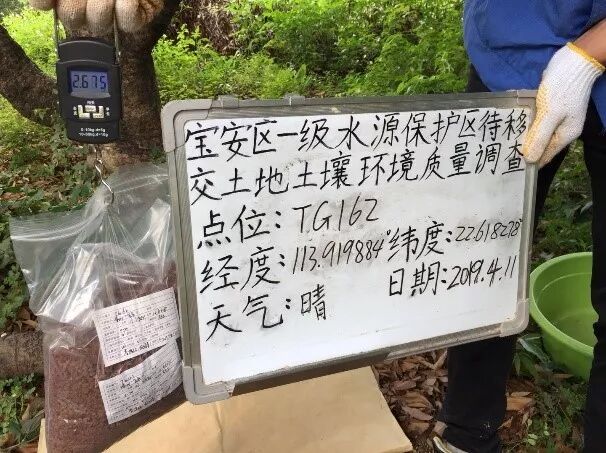 2.675
宝安区一级水源保护区待移
交土地土壤环境质量调查
点位:TG162
经度:113.919884°纬度:22.618228°
天气:晴 日期:2019.4.11